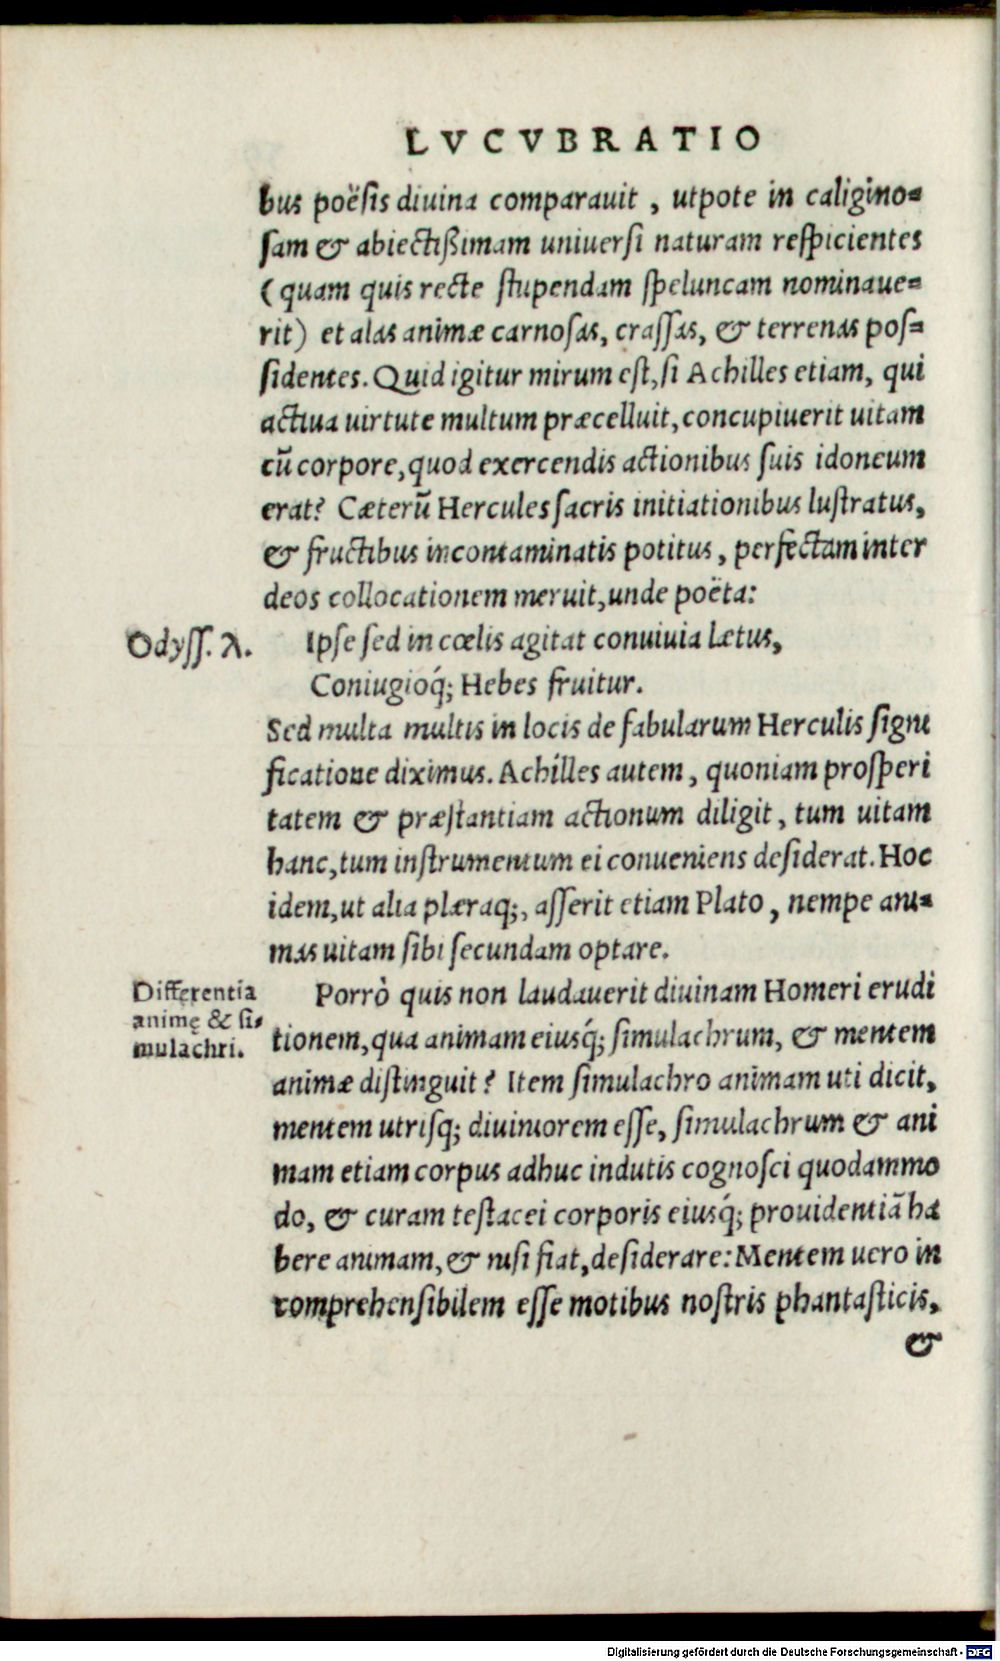 LVCVBRATIO
bus poësis diuina comparauit, utpote in caligino=
sam & abiectißimam uniuersi naturam respicientes
(quam quis recte stupendam speluncam nominaue=
rit) et alas animæ carnosas, crassas, & terrenas pos=
sidentes. Quid igitur mirum est, si Achilles etiam, qui
actiua uirtute multum præcelluit, concupiuerit uitam
cū corpore, quod exercendis actionibus suis idoneum
erat? Cæterū Hercules sacris initiationibus lustratus,
& fructibus incontaminatis potitus, perfectam inter
deos collocationem meruit, unde poëta:
Odyss. λ.
Ipse sed in cœlis agitat conuiuia lætus,
Coniugioq́; Hebes fruitur.
Sed multa multis in locis de fabularum Herculis signi
ficatione diximus. Achilles autem, quoniam prosperi
tatem & præstantiam actionum diligit, tum uitam
hanc, tum instrumentum ei conueniens desiderat. Hoc
idem, ut alia plæraq;, asserit etiam Plato, nempe ani=
mas uitam sibi secundam optare.
Differentia
animę & si-
mulachri.
Porrò quis non laudauerit diuinam Homeri erudi
tionem, qua animam eiusq́; simulachrum, & mentem
animæ distinguit? Item simulachro animam uti dicit,
mentem utrisq; diuiniorem esse, simulachrum & ani
mam etiam corpus adhuc indutis cognosci quodammo
do, & curam testacei corporis eiusq́; prouidentiā ha
bere animam, & nisi fiat, desiderare: Mentem uero in
comprehensibilem esse motibus nostris phantasticis,
&
Digitalisierung gefördert durch die Deutsche Forschungsgemeinschaft - DFG